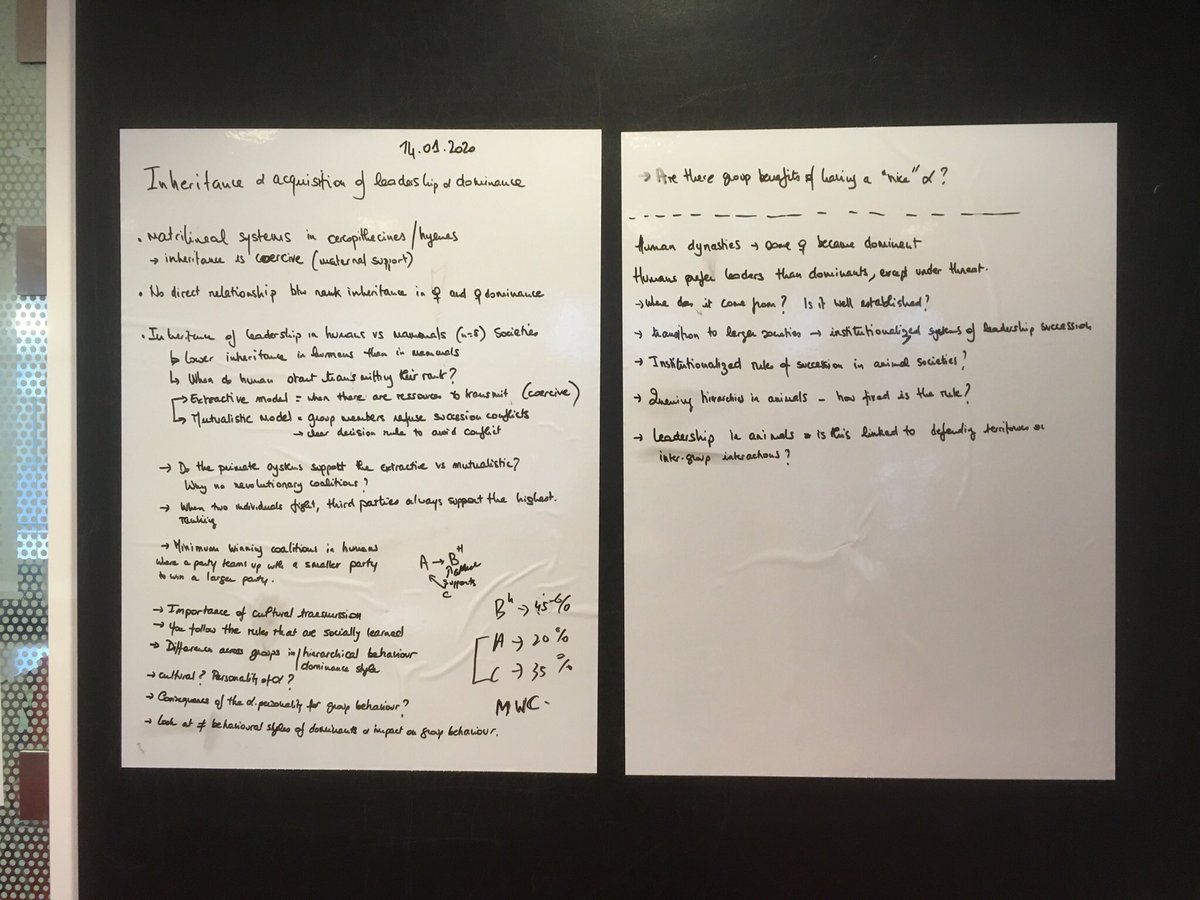 14.01.2020
Inheritance & acquisition of leadership & dominance
• Matrilineal systems in cercopithecines/hyenas
→ inheritance is coercive (maternal support)
• No direct relationship btw rank inheritance in ♀ and ♀ dominance
• Inheritance of leadership in humans vs mammals (n=8) societies
↳ lower inheritance in humans than in mammals
↳ When do human start transmitting their rank?
→ Extractive model = when there are ressources to transmit (coercive)
→ Mutualistic model = group members refuse succession conflicts
→ clear decision rule to avoid conflict
→ Do the primate systems support the extractive vs mutualistic?
Why no revolutionary coalitions?
→ When two individuals fight, third parties always support the highest.
ranking
→ Minimum winning coalitions in humans
where a party teams up with a smaller party
to win a larger party.
A → B H
supports
C
→ Importance of cultural transmission
→ You follow the rules that are socially learned
→ Difference across groups in / hierarchical behaviour
dominance style
→ cultural? Personality of α?
→ Consequence of the α-personality for group behaviour?
→ Look at ≠ behavioural styles of dominants & impact on group behaviour.
B → 45%
A → 20%
C → 35%
MWC.
→ Are there group benefits of having a "nice" α?
Human dynasties → some ♀ became dominent
Humans prefer leaders than dominants, except under threat.
→ Where does it come from? Is it well established?
→ transition to larger societies → institutionalized systems of leadership succession
→ Institutionalized rules of succession in animal societies?
→ Queuing hierarchies in animals – how fixed is the rule?
→ Leadership in animals = is this linked to defending territories or
inter-group interactions?